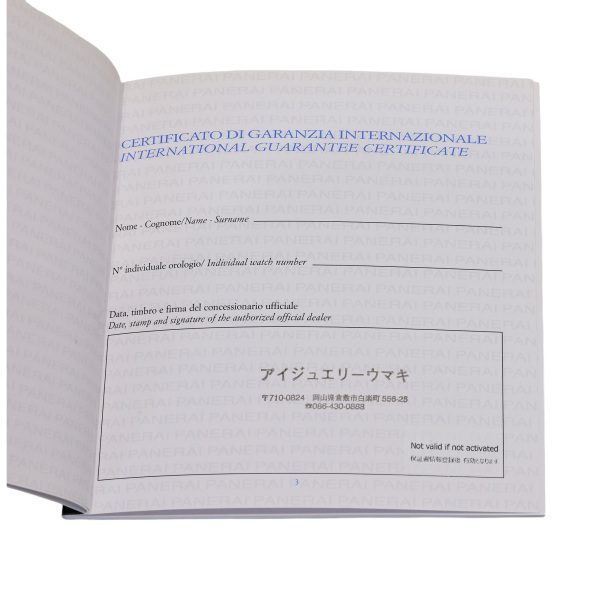 CERTIFICATO DI GARANZIA INTERNAZIONALE
INTERNATIONAL GUARANTEE CERTIFICATE
Nome - Cognome/Name - Surname
N° individuale orologio/ Individual watch number
Data, timbro e firma del concessionario ufficiale
Date, stamp and signature of the authorized official dealer
アイジュエリーウマキ
〒710-0824 岡山県倉敷市白楽町556-25
☎086-430-0888
Not valid if not activated
保証書情報登録後 有効となります
3